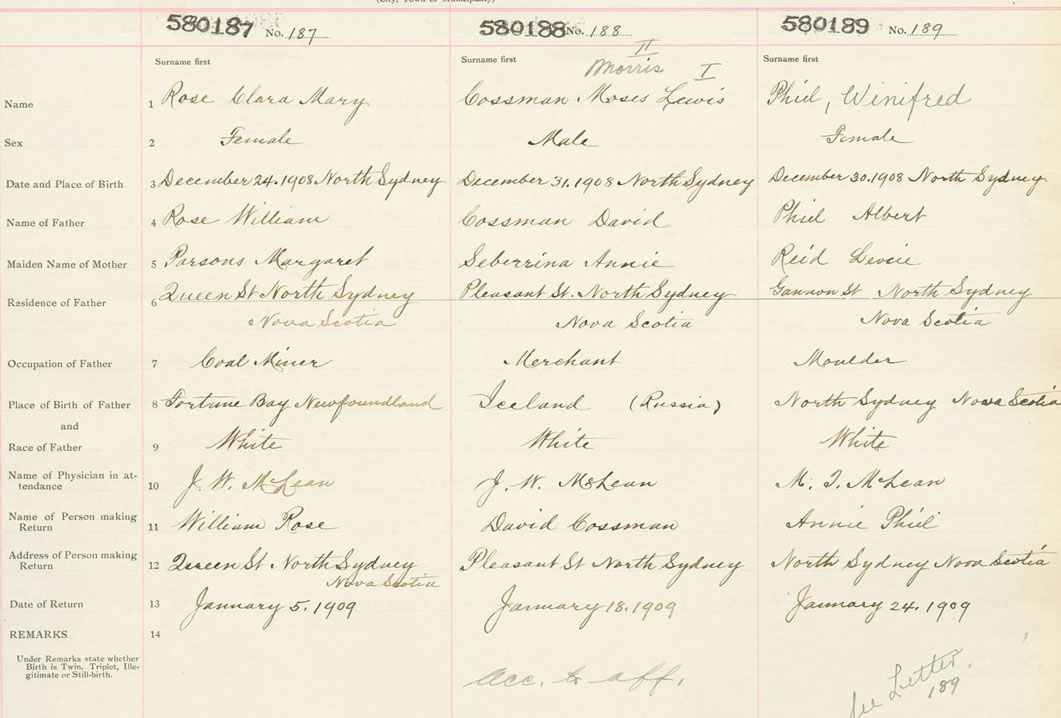 (City, Town or Municipality)
580187 No. 187 580188 No. 188 580189 No. 189
II
Surname first Surname first Morris I Surname first
Name 1 Rose Clara Mary Cossman Moses Lewis Phiel, Winifred
Sex 2 Female Male Female
Date and Place of Birth 3 December 24. 1908 North Sydney December 31. 1908 North Sydney December 30. 1908 North Sydney
Name of Father 4 Rose William Cossman David Phiel Albert
Maiden Name of Mother 5 Parsons Margaret Seberrina Annie Reid
Residence of Father 6 Queen St North Sydney Pleasant St. North Sydney Gannon St North Sydney
Nova Scotia Nova Scotia Nova Scotia
Occupation of Father 7 Coal Miner Merchant Moulder
Place of Birth of Father 8 Fortune Bay Newfoundland Iceland (Russia) North Sydney Nova Scotia
and
Race of Father 9 White White White
Name of Physician in at-
tendance 10 J. W. McLean J. W. McLean M. T. McLean
Name of Person making
Return 11 William Rose David Cossman Annie Phiel
Address of Person making
Return 12 Queen St North Sydney Pleasant St North Sydney North Sydney Nova Scotia
Nova Scotia
Date of Return 13 January 5. 1909 January 18. 1909 January 24. 1909
REMARKS 14
Under Remarks state whether
Birth is Twin, Triplet, Ille-
gitimate or Still-birth.
acc. to aff.
See Letter.
189